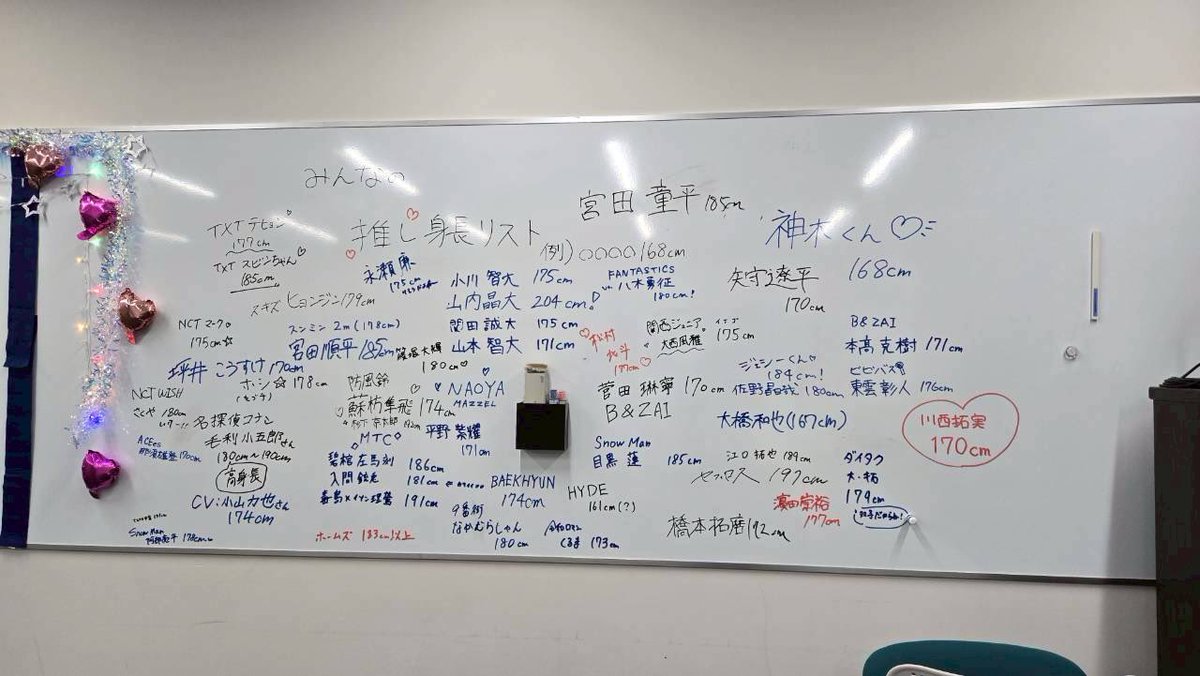 みんなの
推し身長リスト
例)○○○○168cm
宮田 童平185cm
神木くん♡
168cm
TXT テヒョン
177cm
TXT スビンちゃん♡
185cm
スキズ ヒョンジン179cm
永瀬 廉
175cm
小川 智大 175cm
山内晶大 204cm!
関田 誠大 175cm
山本 智大 171cm
FANTASTICS
八木勇征
180cm!
矢守遼平
170cm
NCT マーク
175cm☆
スンミン 2m(178cm)
宮田順平185cm
篠塚大輝
180cm♡
♡松村
北斗
177cm♡
関西ジュニア
大西風雅
175cm
B&ZAI
本髙克樹 171cm
坪井こうすけ170cm
ホーシ☆178cm
(セブチ)
NCT WISH
さくや 180cm
防風鈴
蘇枋隼飛 174cm
杉下 京太郎 192cm
♡NAOYA♡
MAZZEL
平野紫耀
171cm
ジェシーくん♡
184cm!
佐野晶哉 180cm
菅田琳寧 170cm
B&ZAI
ビビバス
東雲彰人 176cm
大橋和也(167cm)
川西拓実
170cm
名探偵コナン
毛利小五郎さん
180cm~190cm
高身長
CV:小山力也さん
174cm
ACEes
170cm
MTC
碧棺 左馬刻 186cm
入間 銃兎 181cm
毒島メイソン理鶯 191cm
Snow Man
目黒 蓮 185cm
江口拓也 189cm
セフィロス 197cm
ダイタク
大・拓
179cm
濵田崇裕
177cm
BAEKHYUN
174cm
HYDE
161cm(?)
9番街
なかむらしゃん
180cm
くるま 173cm
橋本拓磨192cm
Snow Man
阿部亮平 178cm
ホームズ 183cm以上